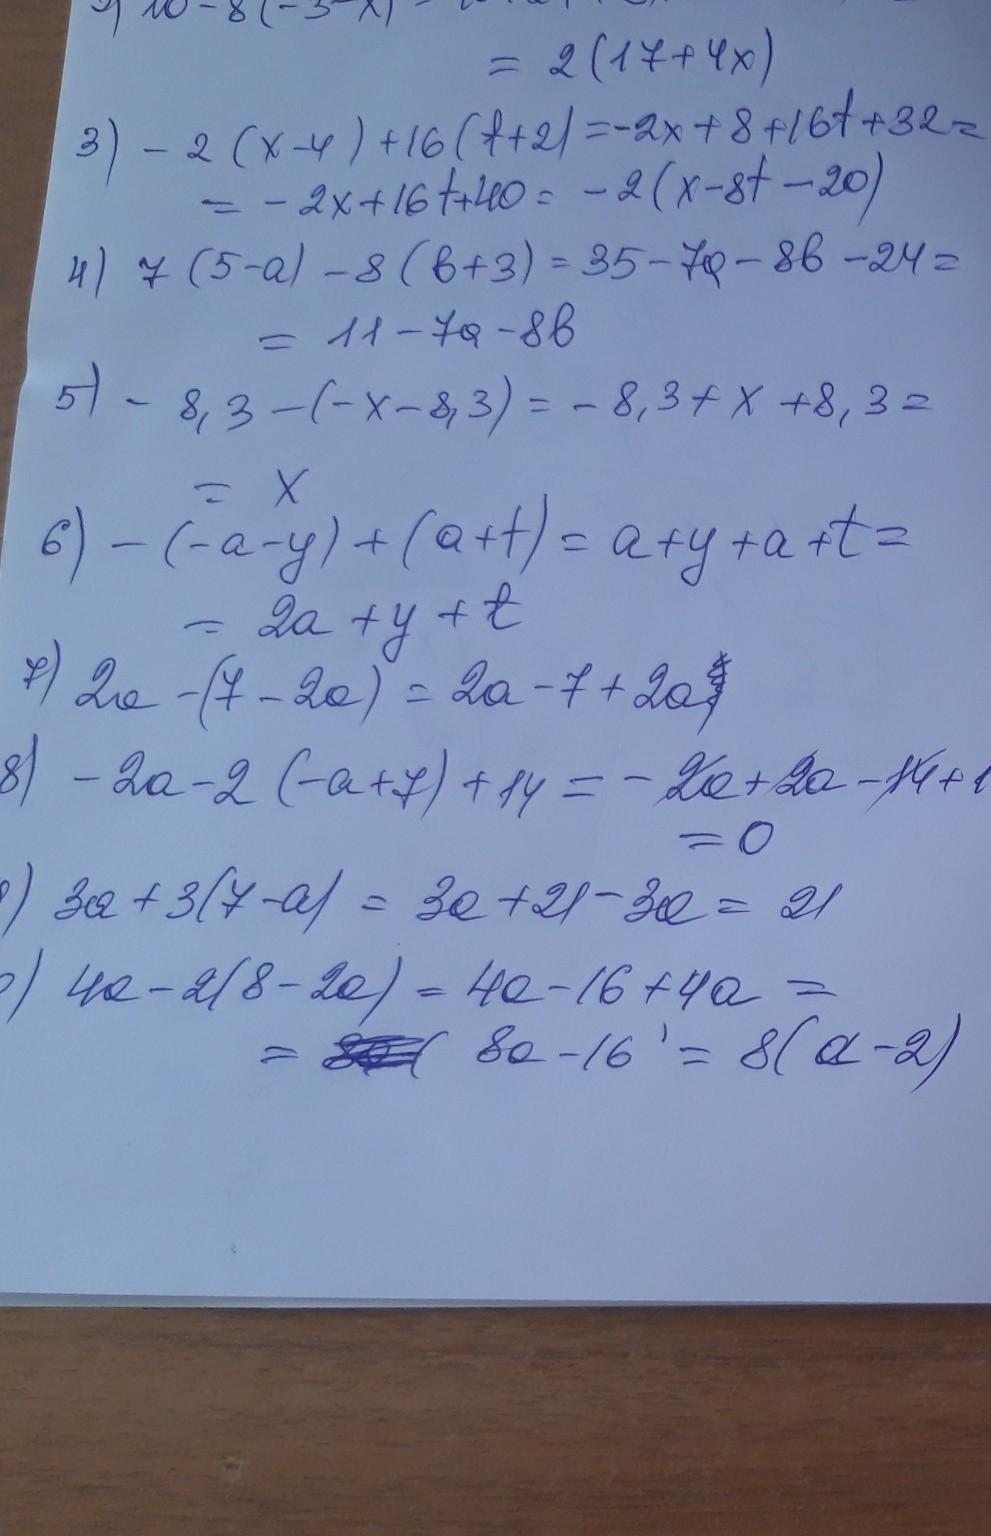 10-8(-3-x)=
= 2(17+4x)
3) -2(x-4)+16(t+2)=-2x+8+16t+32=
= -2x+16t+40= -2(x-8t-20)
4) 7(5-a)-8(b+3)=35-7a-8b-24=
= 11-7a-8b
5) -8,3-(-x-8,3)=-8,3+x+8,3=
= x
6) -(-a-y)+(a+t)=a+y+a+t=
= 2a+y+t
7) 2a-(7-2a)=2a-7+2a
8) -2a-2(-a+7)+14=-2a+2a-14+1
=0
) 3a+3(7-a)=3a+21-3a=21
) 4a-2(8-2a)=4a-16+4a=
= 8a-16=8(a-2)